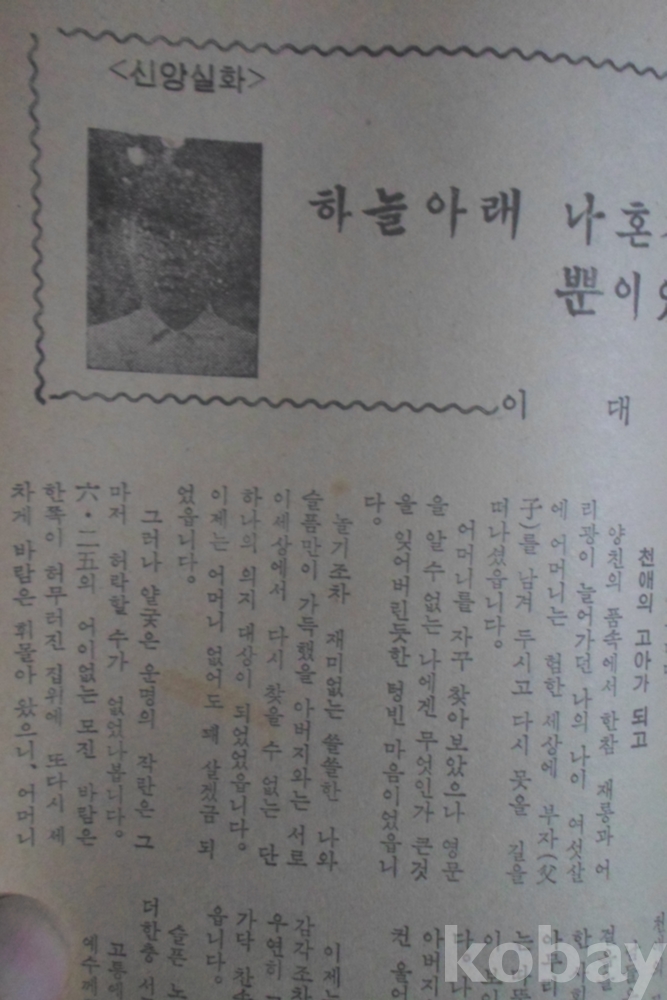 <신앙실화>
하늘아래 나 혼
뿐이
이 대
천애의 고아가 되고
양친의 품속에서 한참 재롱과 어
리광이 늘어가던 나의 나이 여섯살
에 어머니는 험한 세상에 부자(父
子)를 남겨 두시고 다시 못올 길을
떠나셨읍니다。
어머니를 자꾸 찾아보았으나 영문
을 알 수 없는 나에겐 무엇인가 큰것
을 잊어버린듯한 텅빈 마음이었읍니
다。
놀기조차 재미없는 쓸쓸한 나와
슬픔만이 가득했을 아버지와는 서로
이세상에서 다시 찾을 수 없는 단
하나의 의지 대상이 되었었읍니다。
이제는 어머니 없어도 꽤 살겠금 되
었읍니다。
그러나 얄궂은 운명의 작란은 그
마저 허락할 수가 없었나봅니다。
六・二五의 어이없는 모진 바람은
한쪽이 허무러진 집위에 또다시 세
차게 바람은 휘몰아 왔으니, 어머니
아버지
이제는
감각조차
우연히
가닥 찬송
읍니다。
슬픈 노
더한층 서
고틀에
예수께
kobay